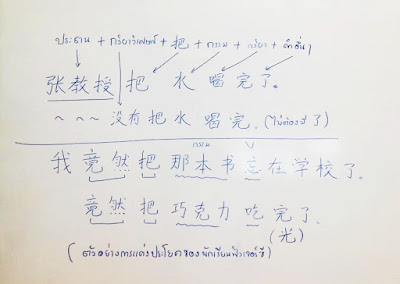 ประธาน + กริยาวิเศษณ์ + 把 + กรรม + กริยา + คำอื่นๆ
张教授 把 水 喝完了。
~ ~ ~ 没有把水 喝完. (ไม่ต้องมี 了)
กรรม V
我 竟然把那本书忘在学校了.
竟然 把 巧克力 吃完了.
(光)
(ตัวอย่างการแต่งประโยคของนักเรียนฟิวเจอร์ซี)